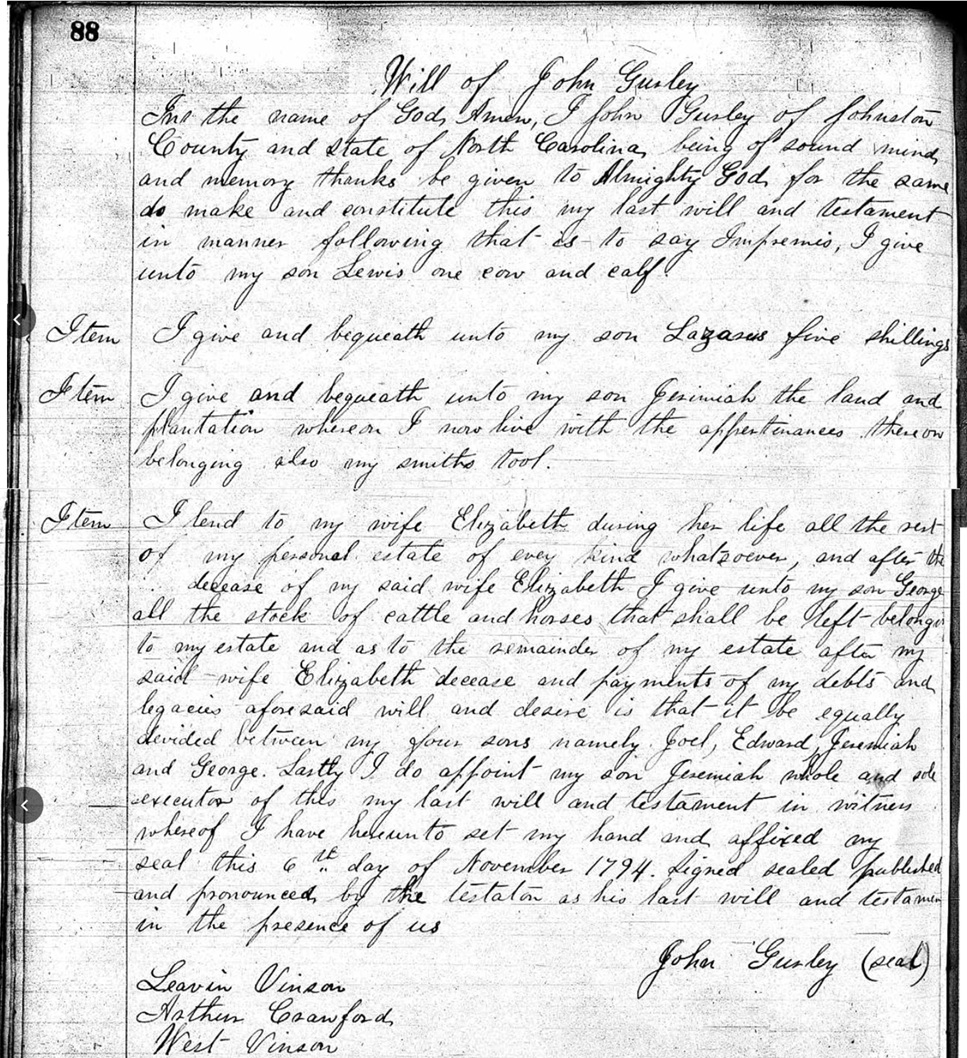 88
Will of John Gurley
In the name of God, Amen, I John Gurley of Johnston
County and state of North Carolina, being of sound mind
and memory thanks be given to Almighty God for the same
do make and constitute this my last will and testament
in manner following that is to say Impremis, I give
unto my son Lewis one cow and calf
Item I give and bequeath unto my son Lazarus five shillings
Item I give and bequeath unto my son Jerimiah the land and
plantation whereon I now live with the appertinances thereon
belonging also my smiths tool.
Item I lend to my wife Elizabeth during her life all the rest
of my personal estate of evey kind whatsoever, and after the
decease of my said wife Elizabeth I give unto my son George
all the stock of cattle and horses that shall be left belongin
to my estate and as to the remainder of my estate after my
said wife Elizabeth decease and payments of my debts and
legacies aforesaid will and desire is that it be equally
devided between my four sons namely Joel, Edward, Jeremiah
and George. Lastly I do appoint my son Jeremiah whole and sole
executor of this my last will and testament in witness
whereof I have hereunto set my hand and affixed my
seal this 6th day of November 1794. Signed sealed published
and pronounced by the testator as his last will and testamen
in the presence of us
John Gurley (seal)
Leavin Vinson
Arthur Crawford
West Vinson